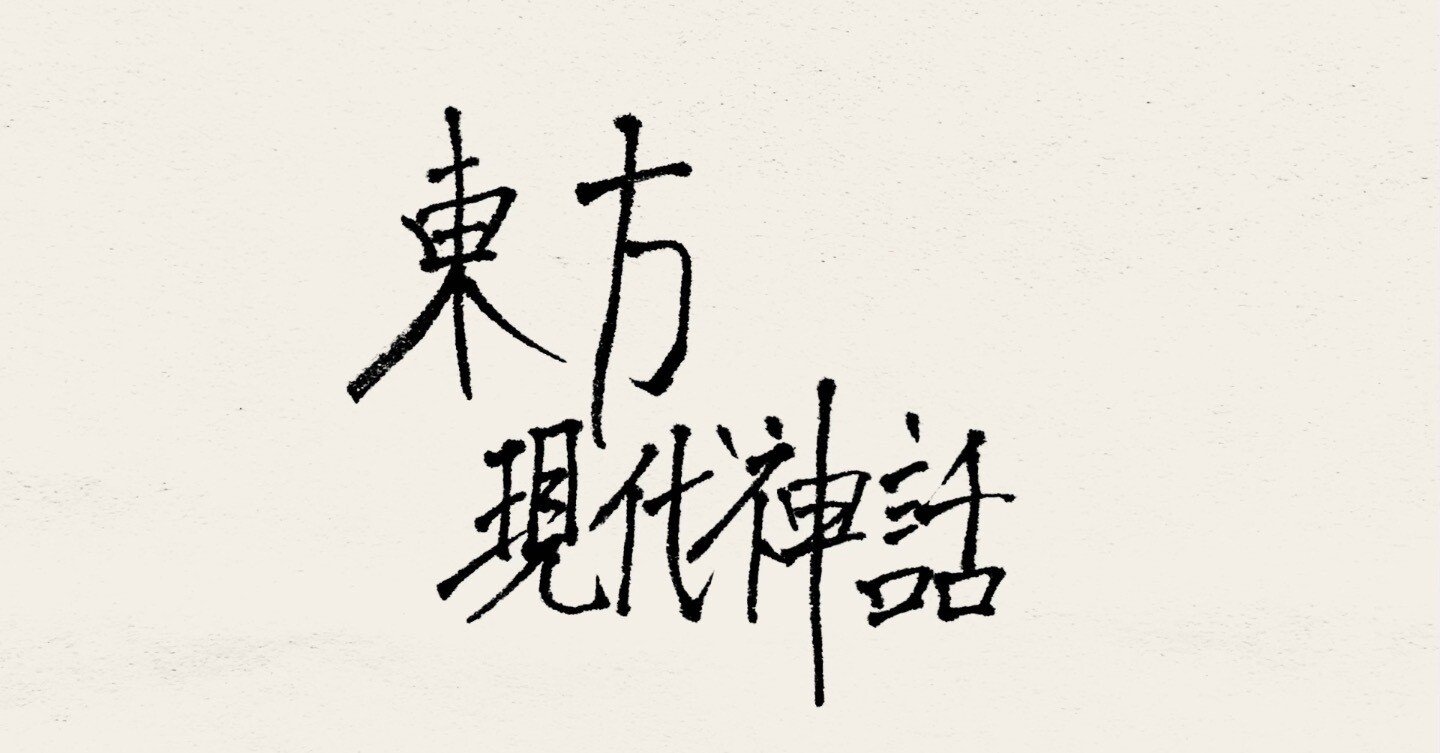 東方
現代神話